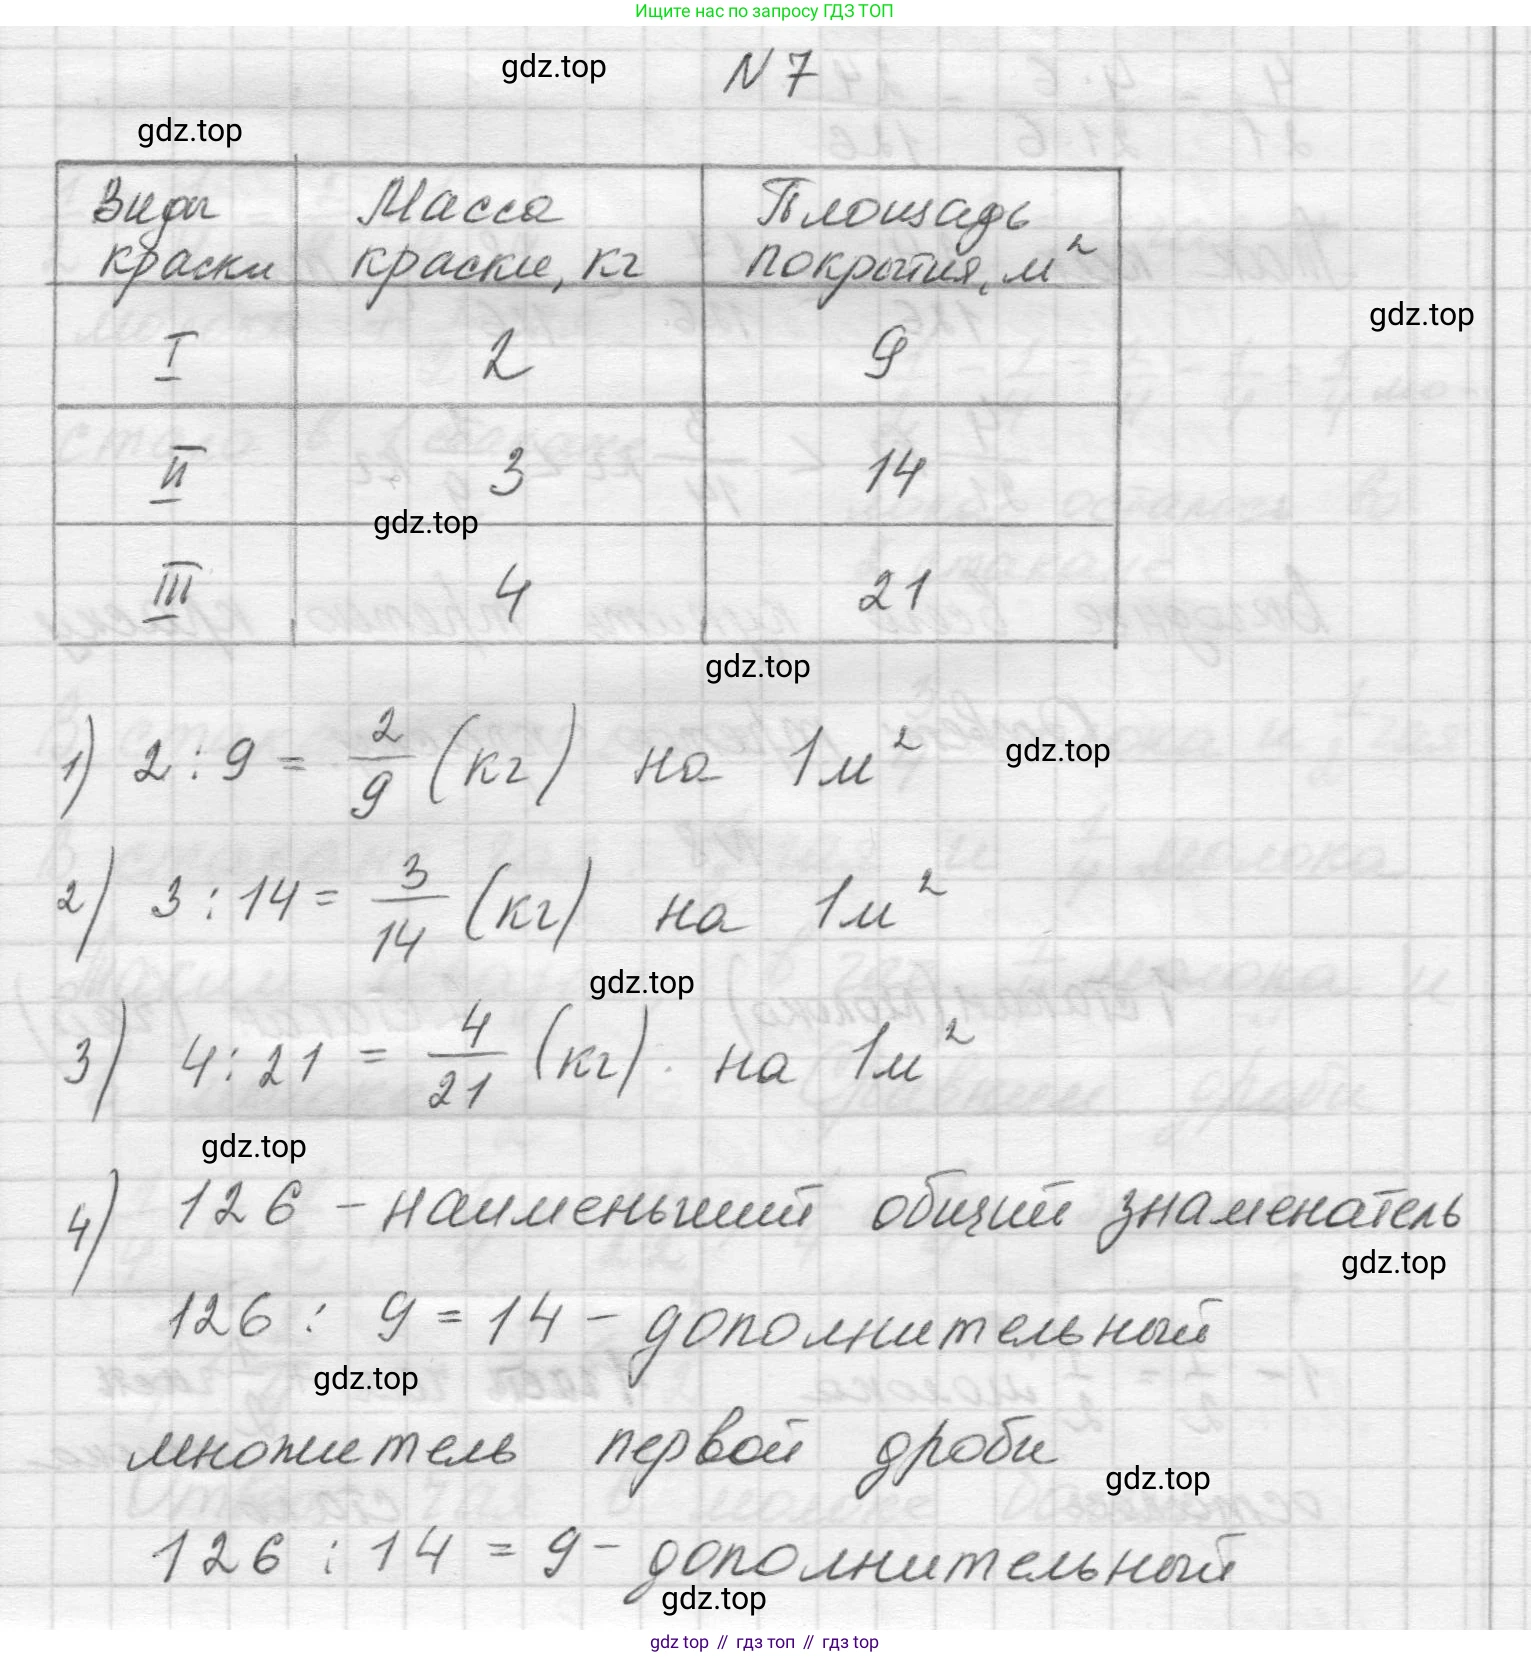 Ищите нас по запросу ГДЗ ТОП
gdz.top
N 7
gdz.top
Виды краски | Масса краски, кг | Площадь покрытия, м²
gdz.top
I | 2 | 9
II | 3 | 14
gdz.top
III | 4 | 21
gdz.top
1) 2 : 9 = 2/9 (кг) на 1м²
gdz.top
2) 3 : 14 = 3/14 (кг) на 1м²
gdz.top
3) 4 : 21 = 4/21 (кг) на 1м²
gdz.top
4) 126 - наименьший общий знаменатель
gdz.top
126 : 9 = 14 - дополнительный
gdz.top
множитель первой дроби
gdz.top
126 : 14 = 9 - дополнительный
gdz.top
gdz top // гдз топ // гдз top